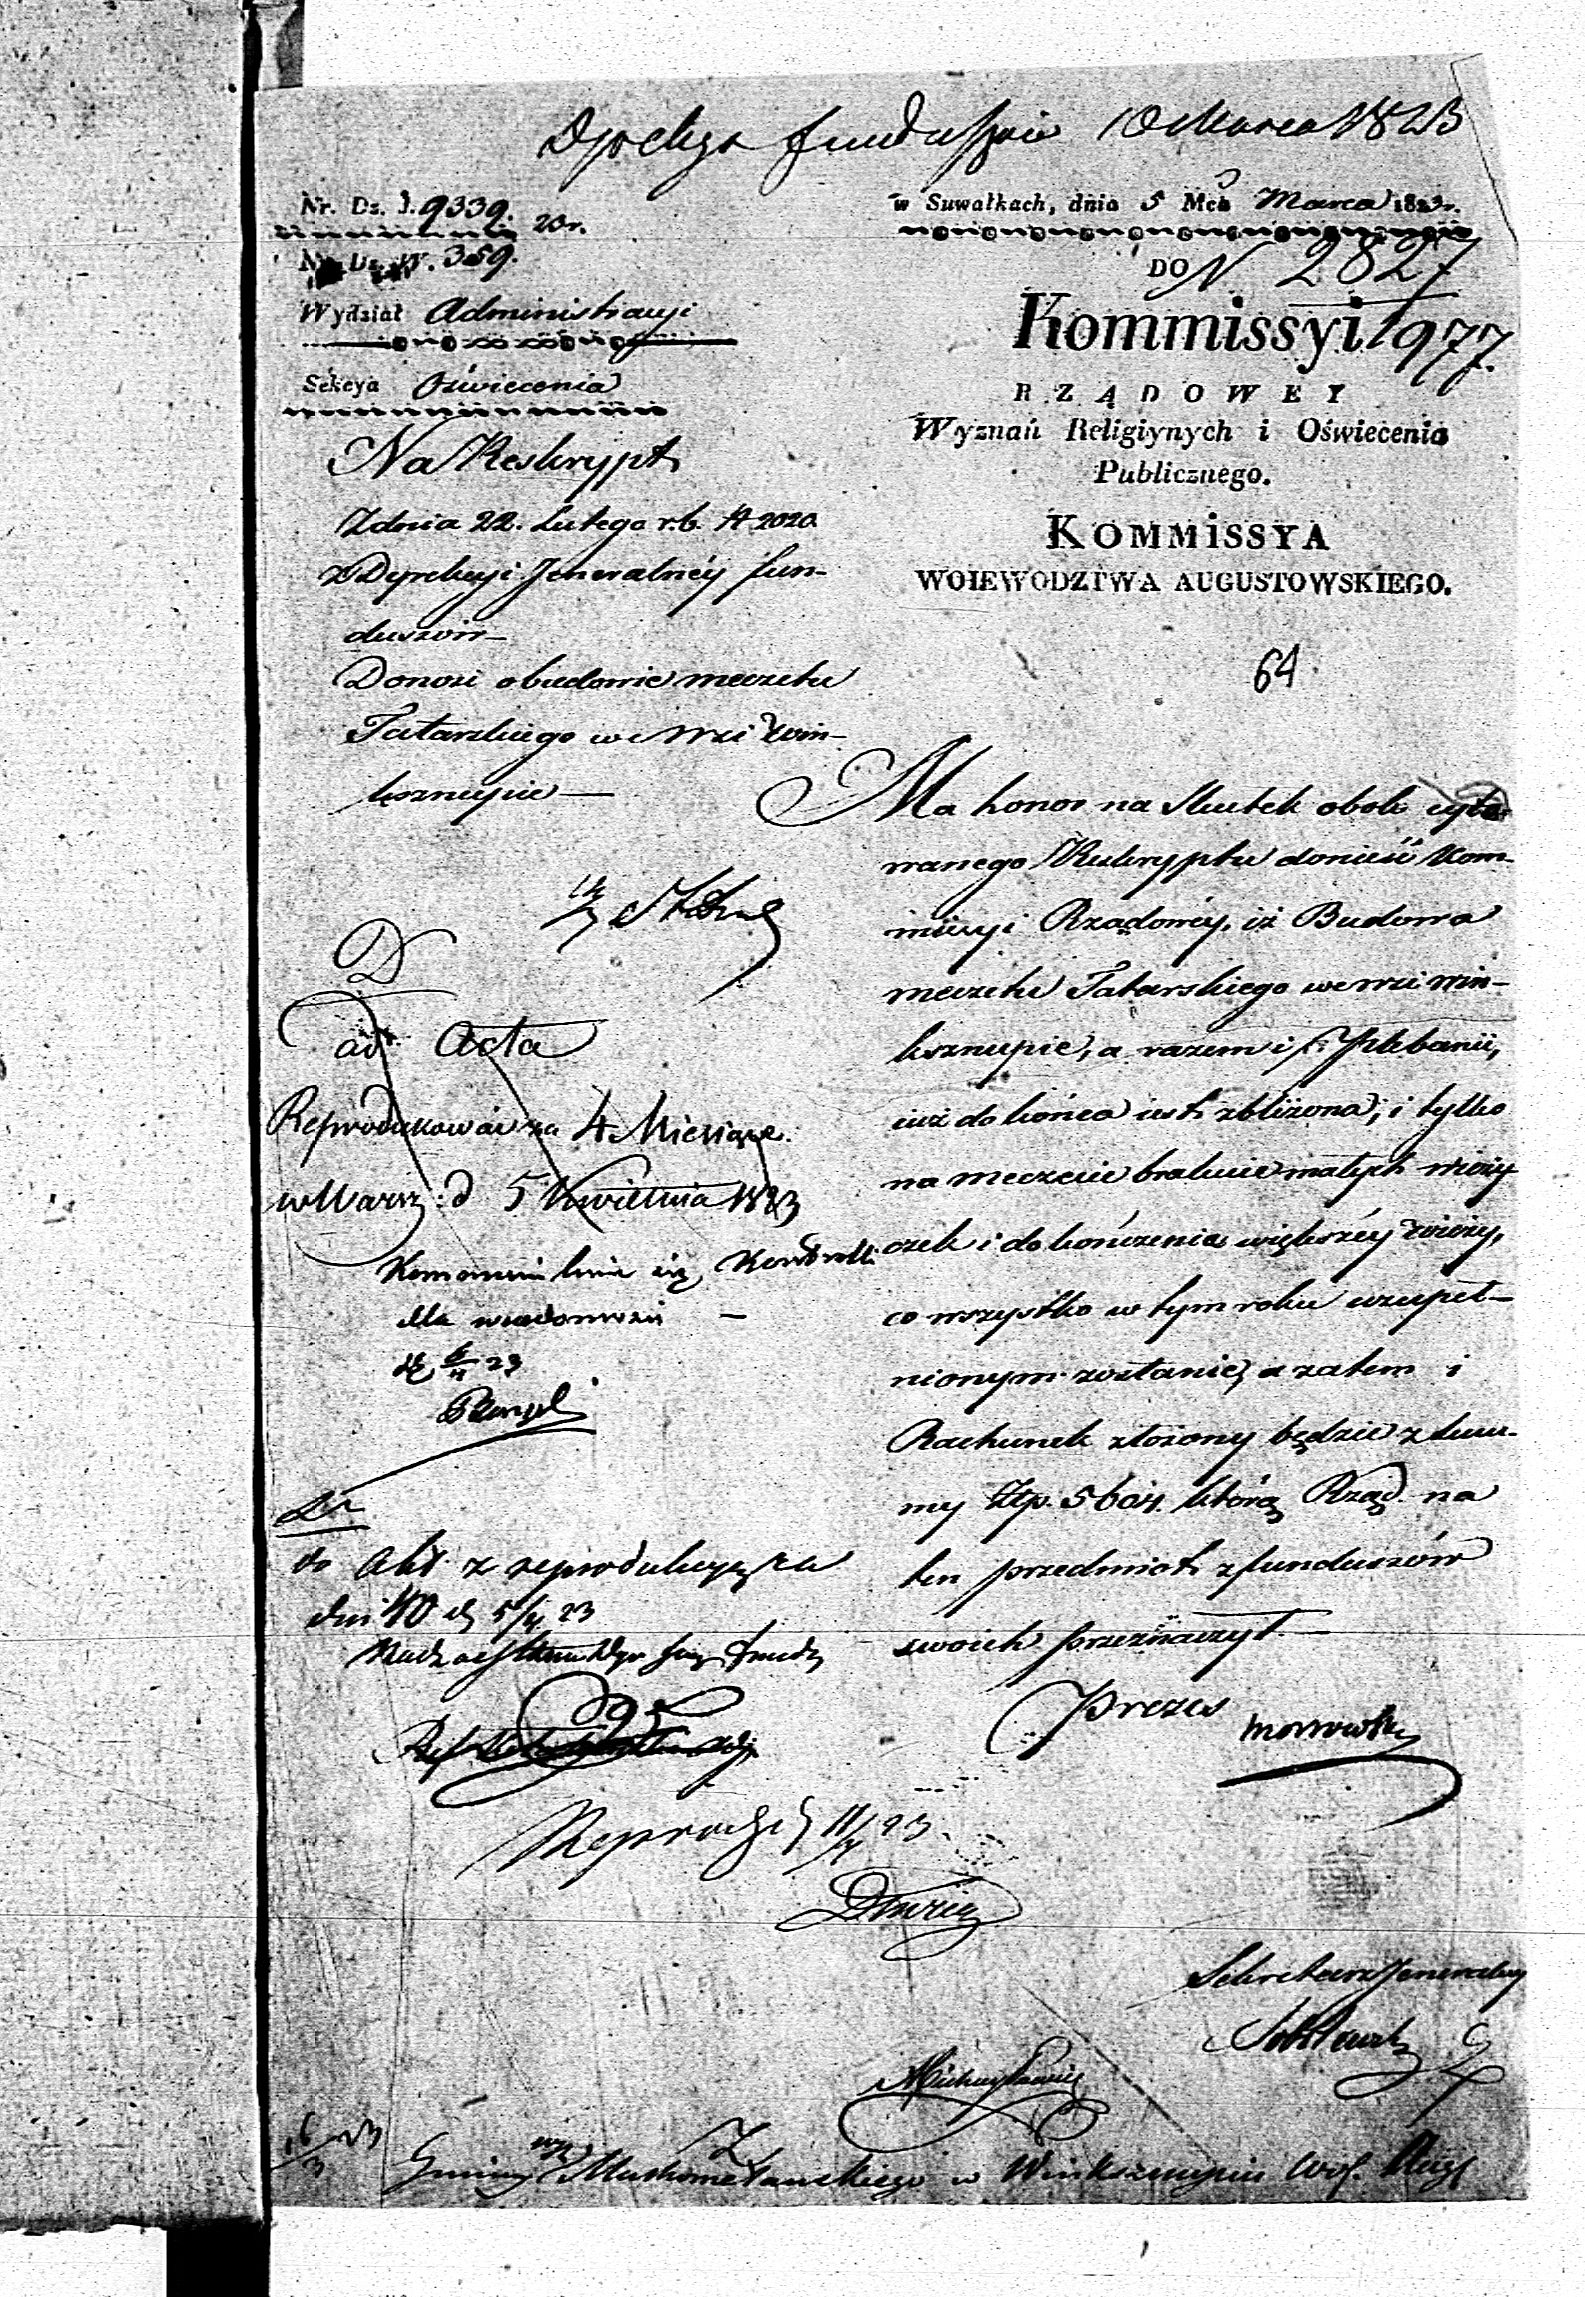 Dyrekcya funduszow 10 Marca 1823
Nr. Dz. J. 9339. 23r.
Nr. Dz. W. 359.
Wydział Administracyi
Sekcya Oświecenia
w Suwałkach, dnia 5 Mca Marca 1823r.
DO N 2827
Kommissyi 1977.
RZĄDOWEY
Wyznań Religiynych i Oświecenia
Publicznego.
KOMMISSYA
WOIEWODZTWA AUGUSTOWSKIEGO.
64
Na Reskrypt
Zdnia 22. Lutego r.b. N 2020
z Dyrekcyi Jeneralnéy fun-
duszów-
Donosi o budowie meczetu
Tatarskiego we wsi Win-
ksznupie—
Ma honor na skutek obok cyto-
wanego Reskryptu donieść Kom-
missyi Rządowéy, iż Budowa
meczetu Tatarskiego we wsi Win-
ksznupie, a razem i Plebanii,
iuż do końca iest zbliżona, i tylko
na meczecie brakuie małych wieży
czek i dokończenia większéy wieży,
co wszystko w tym roku uzupeł-
nionym zostanie, a zatem i
Rachunek złożony będzie z Sum-
my Złp. 5604. którą Rząd na
ten przedmiot z funduszów
swoich przeznaczył.—
Prezes
Sekretarz Jeneralny
D
ad Acta
Reprodukować za 4 Miesiące.
w Warsz: d 5 Kwietnia 1823
Komunikuie się Kontrolli
dla wiadomości —
23
do Akt z reprodukcyą za
dni 40 d 5/4 23
Reprod: d 11/4 23
16/3 23
Gminy Machometańskiego w Winksznupiu Woj. Aug